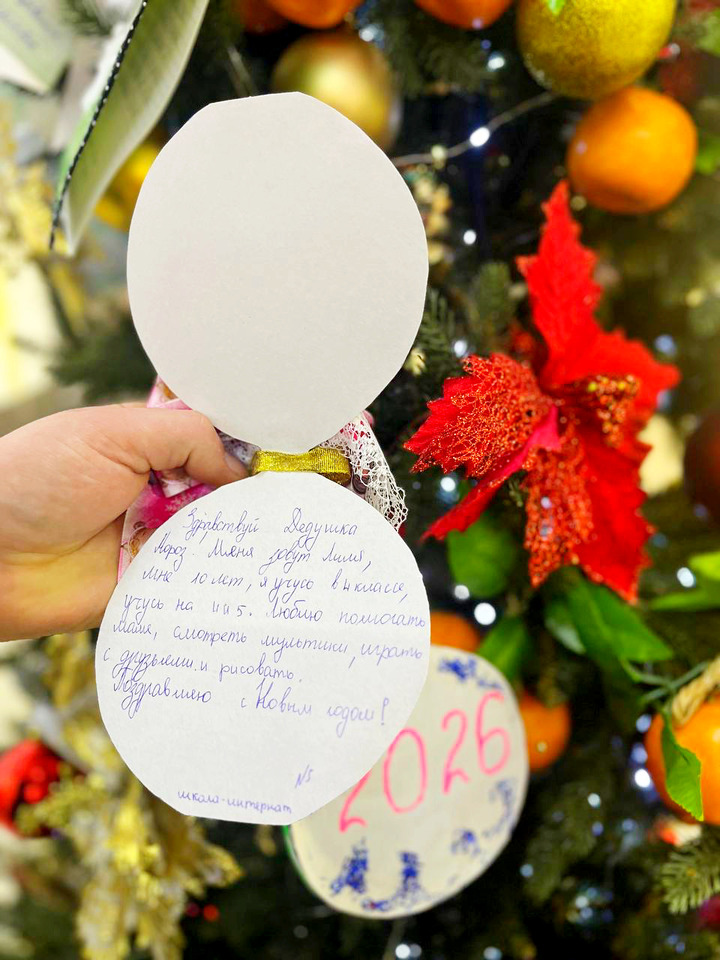 Здравствуй Дедушка
Мороз. Меня зовут Лиля,
мне 10 лет, я учусь в 4 классе,
учусь на 4 и 5. Люблю помогать
маме, смотреть мультики, играть
с друзьями и рисовать.
Поздравляю с Новым годом!
№5
школа-интернат
2026